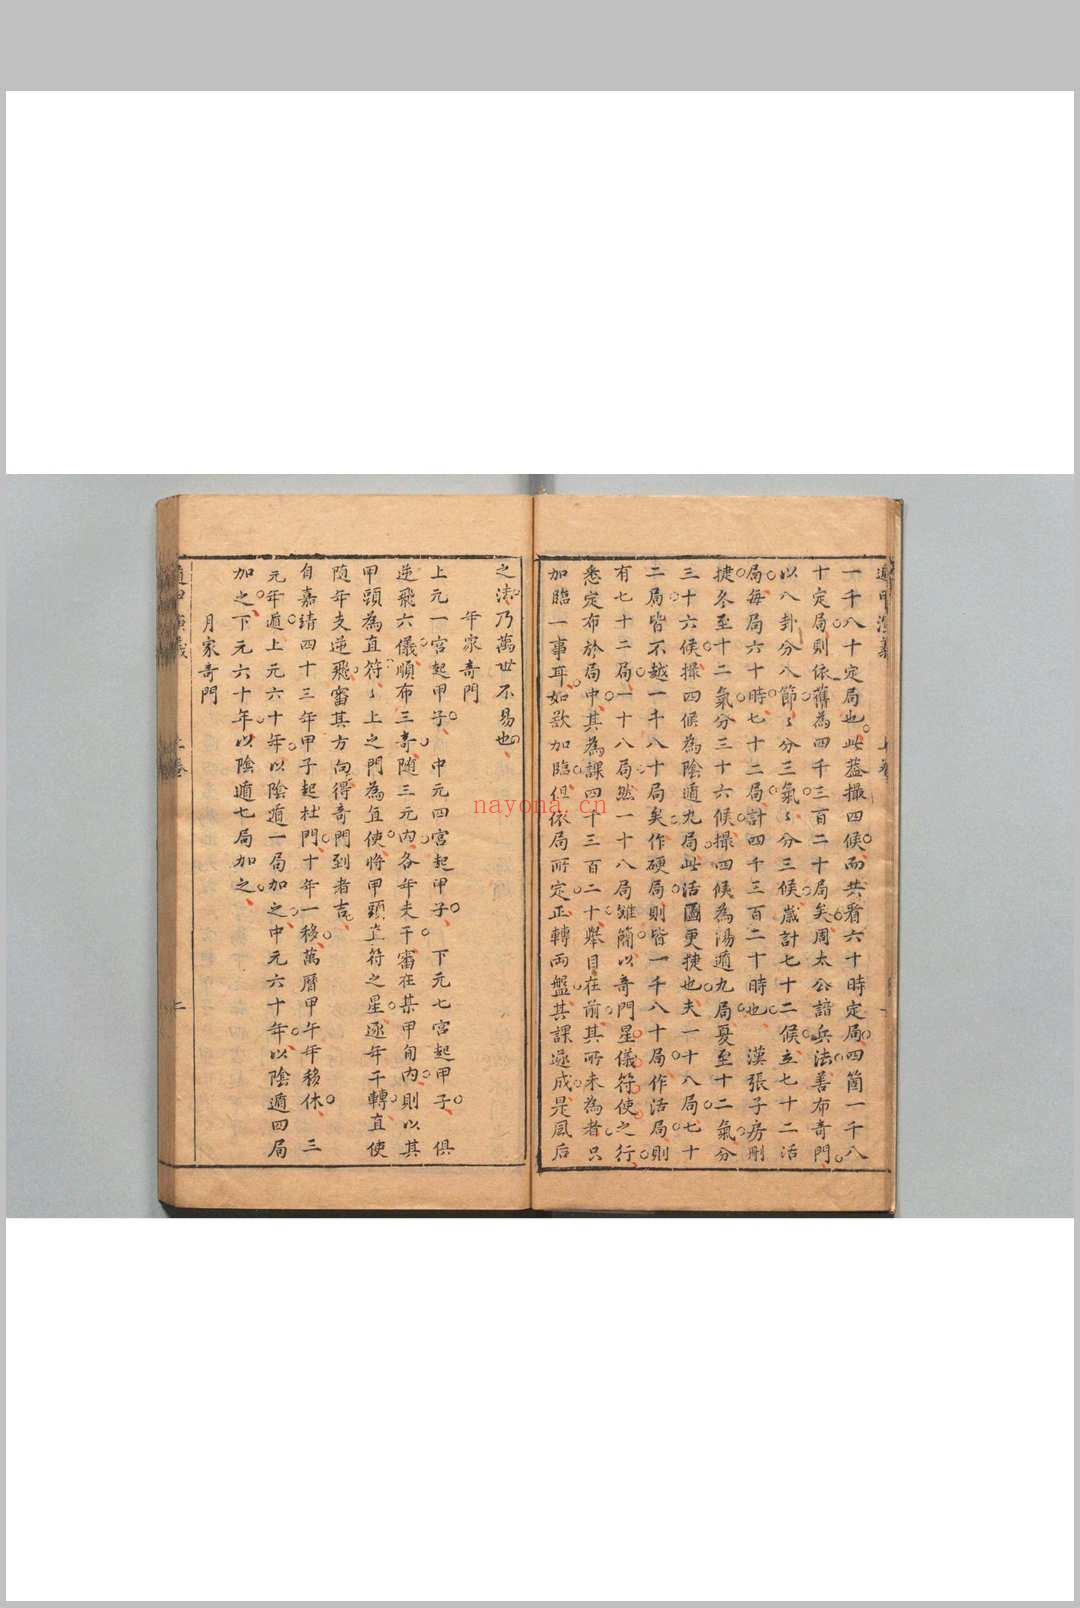 遁甲演義
上卷
一千八十定局也此葢撮四候而共看六十時定局四箇一千八
十定局則依舊為四千三百二十局矣周太公諳兵法善布奇門
以八卦分八節〻分三氣〻分三候歲計七十二候立七十二活
局每局六十時七十二局計四千三百二十時也 漢張子房刪
捷冬至十二氣分三十六候撮四候為陽遁九局夏至十二氣分
三十六候撮四候為陰遁九局此活圖更捷也夫一十八局七十
二局皆不越一千八十局矣作硬局則皆一千八十局作活局則
有七十二局一十八局然一十八局雖簡以奇門星儀符使之行
悉定布於局中其為課四千三百二十舉目在前其所未為者只
加臨一事耳如欲加臨但依局所定正轉两盤其課遂成是風后
之法乃萬世不易也
年家奇門
上元一宮起甲子中元四宮起甲子 下元七宮起甲子 俱
逆飛六儀順布三奇随三元内各年夫干審在某甲旬内則以其
甲頭為直符〻上之門為直使将甲頭直符之星逐年干轉直使
随年支逆飛審其方向得奇門到者吉
自嘉靖四十三年甲子起杜門十年一移萬曆甲午年移休 三
元年遁上元六十年以陰遁一局加之中元六十年以陰遁四局
加之下元六十年以陰遁七局加之
月家奇門
遁甲演義
上卷
nayona.cn